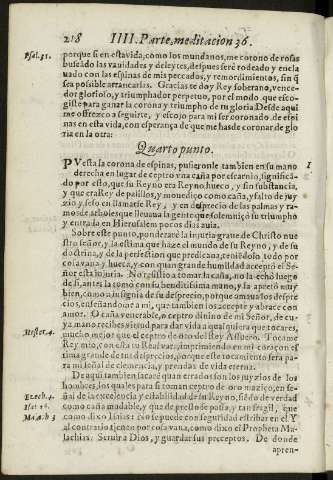 218 IIII. Parte, meditacion 36.
Psal. 31.
porque si en esta vida, como los mundanos, me corono de rosas
buscado las vanidades y deleytes, despues serè rodeado y encla
uado con las espinas de mis peccados, y remordimientos, sin q̃
sea possible arrancarlas. Gracias te doy Rey soberano, vence-
dor glorioso, y triumphador perpetuo, por el modo que esco-
giste para ganar la corona y triumpho de tu gloria. Desde aqui
me offrezco a seguirte, y escojo para mi ser coronado de espi
nas en esta vida, con esperança de que me has de coronar de glo
ria en la otra.
Quarto punto.
PVesta la corona de espinas, pusieronle tambien en su mano
derecha en lugar de ceptro vna caña por escarnio, significã-
do por esto, que su Reyno era Reyno hueco, y sin substancia,
y que era Rey de passillos, y mouedizo como caña, y falto de juy
zio, y seso en llamarse Rey, y en desprecio de las palmas y ra-
mos de arboles que lleuaua la gente que solemnizò su triumpho
y entrada en Hierusalem pocos dias auia.
1
Sobre este punto, ponderarè la injuria graue de Christo nue
stro señor, y la estima que haze el mundo de su Reyno, y de su
doctrina, y de la perfection que predicaua, teniẽdolo todo por
cosa vana y hueca, y con quan grande humildad acceptò el Se-
ñor esta injuria. No resistio a tomar la caña, no la echò luego
de si, antes la tomò con su benditissima mano, y la apretò muy
bien, como a insignia de su desprecio, porque ama los despre
cios, enseñandome a mi, que tambien los accepte y abrace con
amor. O caña venerable, o ceptro diuino de mi Señor, de cu
ya mano recibes virtud para dar vida a qualquiera que tocares,
mucho mejor que el ceptro de oro del Rey Assuero. Tocame
Hester. 4.
Rey mio, con esta tu Real vara, imprimiendo en mi coraçon el
tima grande de tus desprecios, porque este tocamiento serà pa-
ra mi señal de clemencia, y prendas de vida eterna.
De aqui tambien sacarè quan errados son los juyzios de los
hombres, los quales para si toman ceptro de oro mazizo, en se-
Ezech. 4.
ñal de la excelencia y estabilidad de su Reyno, siẽdo de verdad
Isai 36.
como caña mudable, y que de presto se passa, y tan fragil, que
como dixo Isaias: No se puede con seguridad estribar en el. Y
Malach 3
al contrario tienen por cosa vana, como dixo el Propheta Ma-
lachias. Seruir a Dios, y guardar sus preceptos. De donde
apren-